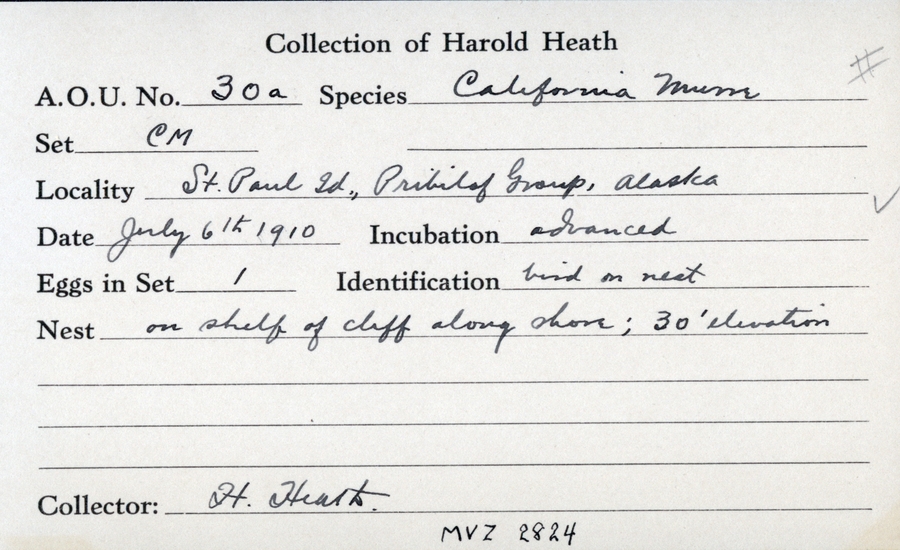 Collection of Harold Heath
#
A.O.U. No. 30a Species California Murre
Set CM
Locality St. Paul Id., Pribilof Group, Alaska
✓
Date July 6th 1910 Incubation advanced
Eggs in Set 1 Identification bird on nest
Nest on shelf of cliff along shore; 30' elevation
Collector: H. Heath.
MVZ 2824